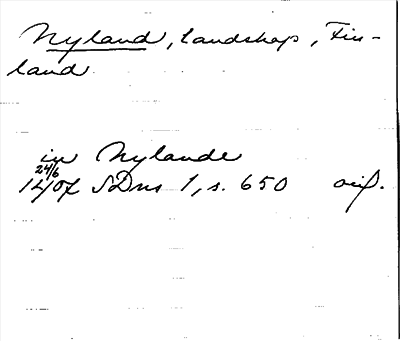 Nyland, landskap, Fin-
land
in Nylande
24/6
1407 SDns 1, s. 650 orig.